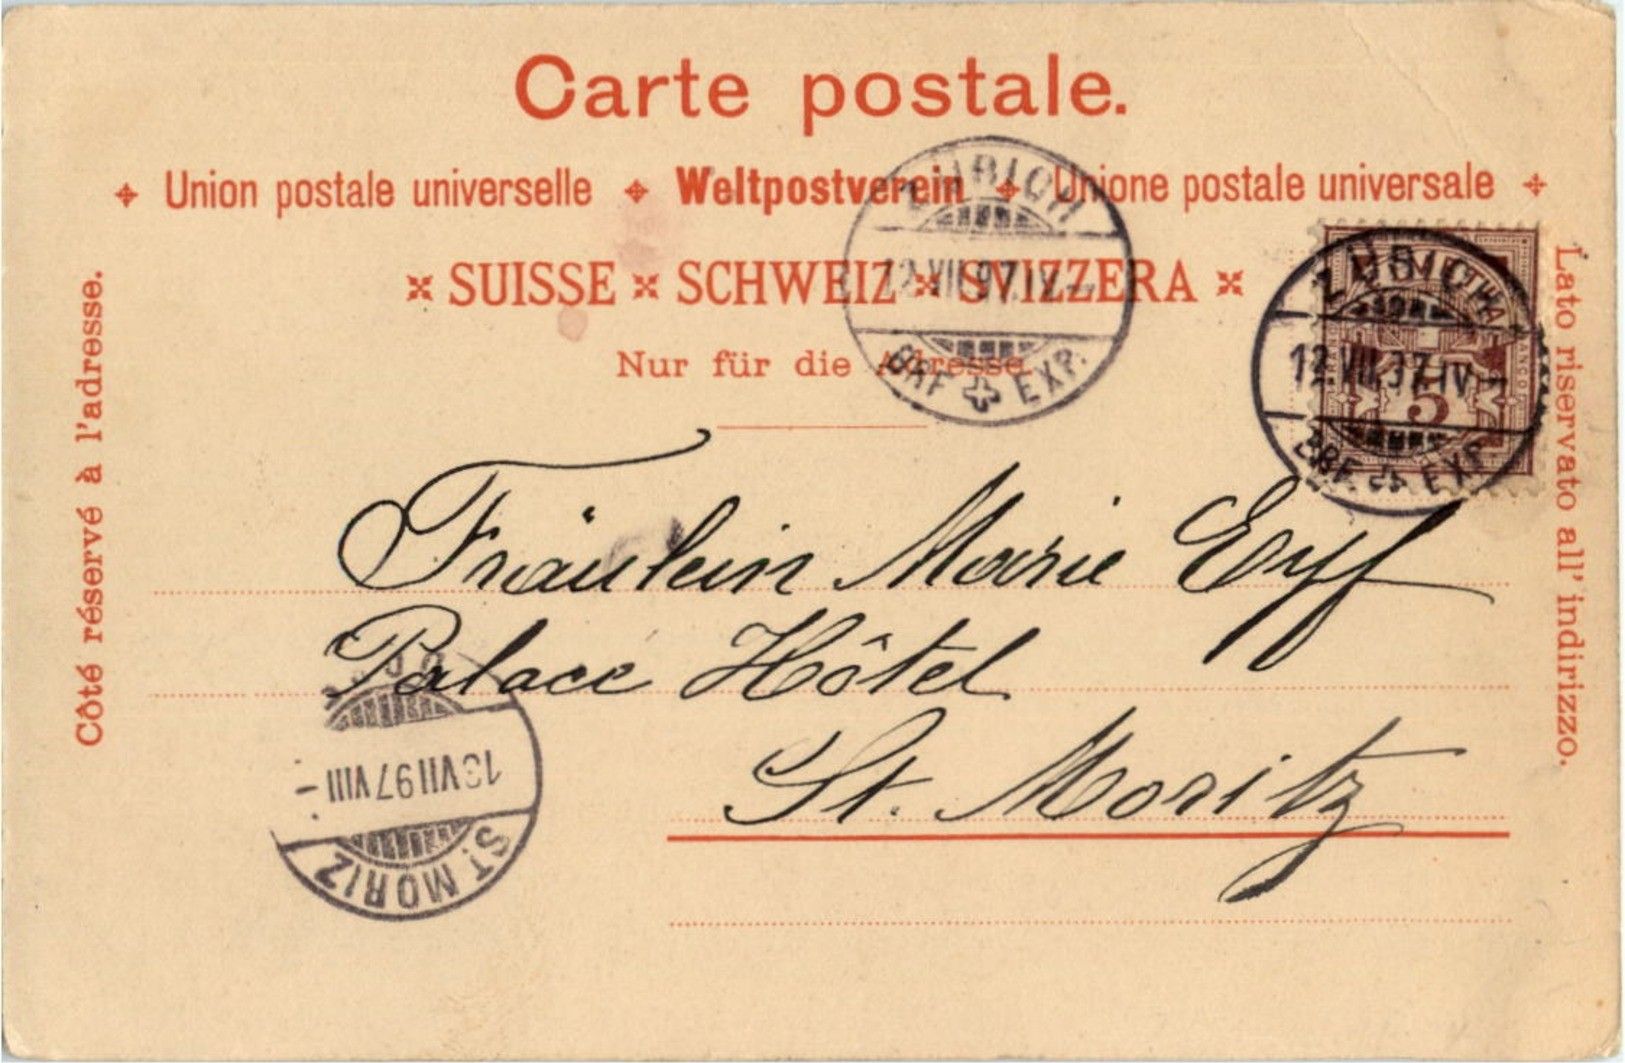 Carte postale.
Union postale universelle Weltpostverein Unione postale universale
SUISSE SCHWEIZ SVIZZERA
Nur für die Adresse.
Côté réservé à l'adresse.
Lato riservato all' indirizzo.
ZÜRICH
12.VII.97.IX-
BRF. EXP.
ZÜRICH
12.VII.97.IV-
BRF. EXP.
FRANCO
5
Fräulein Marie
Palace Hôtel
St. Moritz
13 VII 97 VIII -
ST. MORIZ